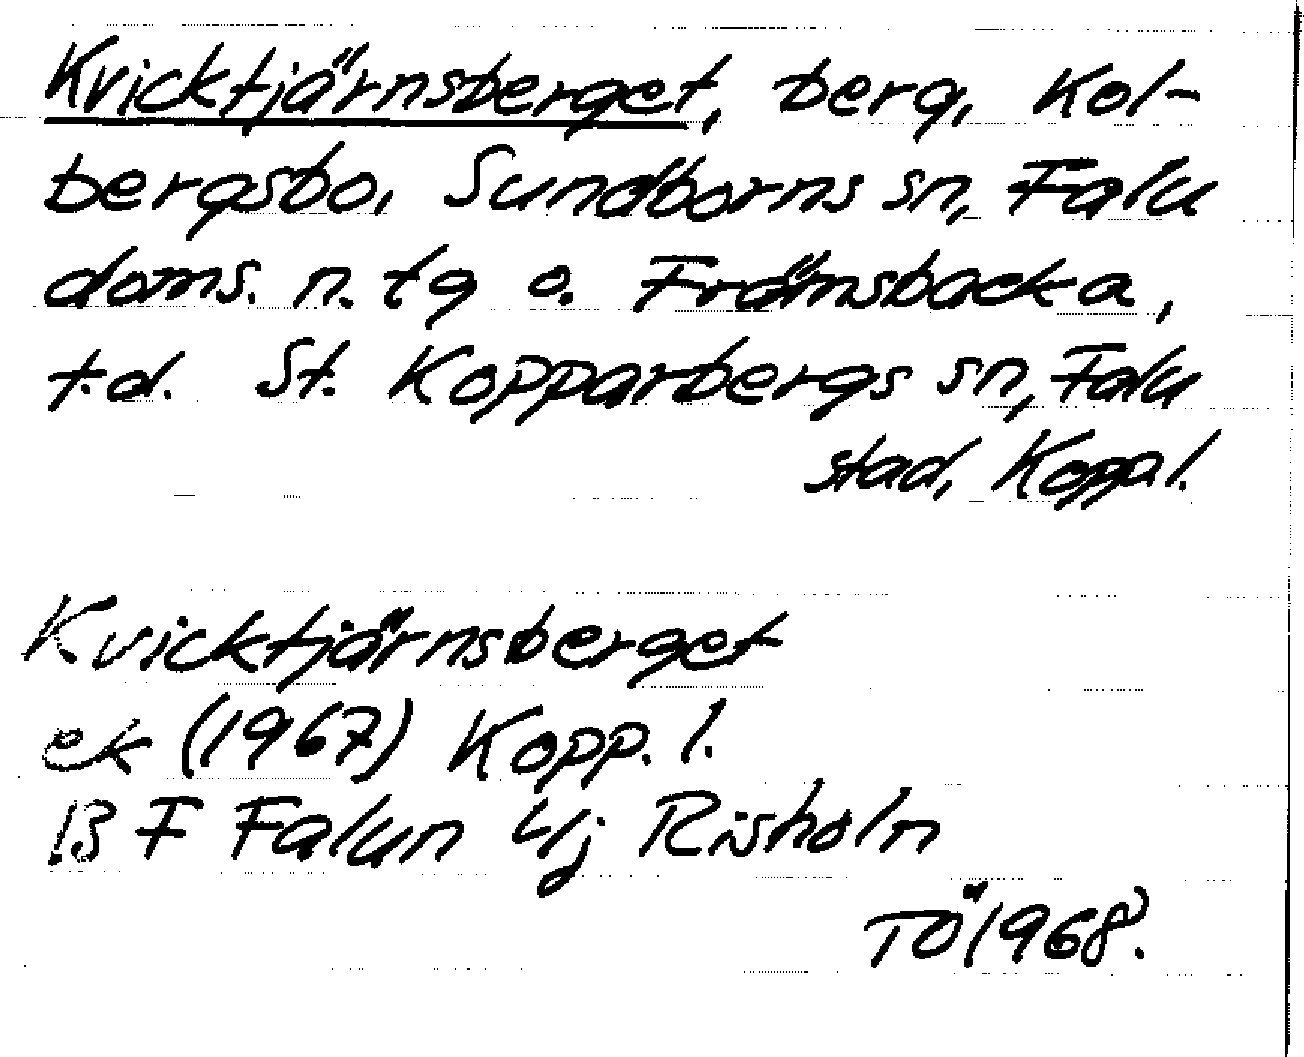 Kvicktjärnsberget, berg, Kol-
bergsbo, Sundborns sn, Falu
doms. n. tg o. Främsbacka,
t.d. St. Kopparbergs sn, Falu
stad, Kopp l.
Kvicktjärnsberget
ek (1967) Kopp. l.
13 F Falun 4j Risholn
TÖ 1968.